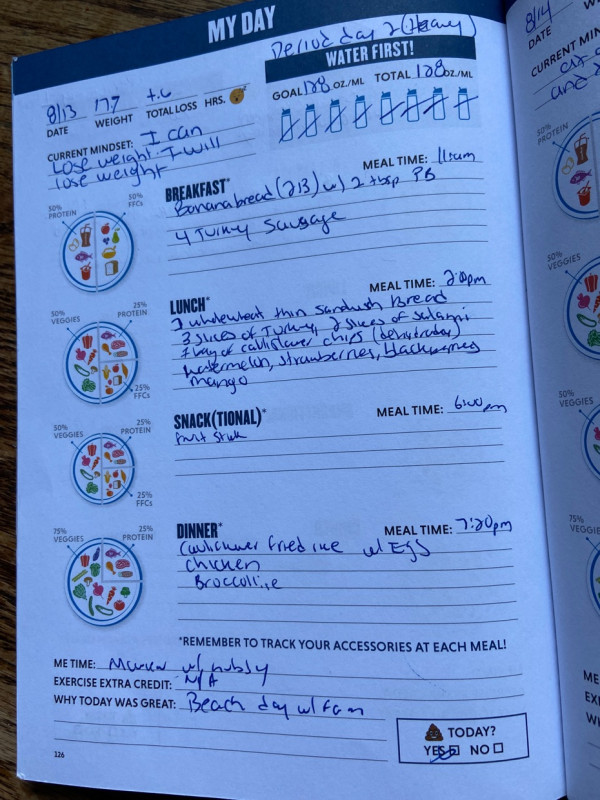 MY DAY
Period day 2 (Heavy)
WATER FIRST!
GOAL 128 OZ./ML TOTAL 128 OZ./ML
8/13 177 +.6
DATE WEIGHT TOTAL LOSS HRS.
CURRENT MINDSET: I can
lose weight. I will
lose weight
BREAKFAST* MEAL TIME: 11:00am
Bananabread (2B) w/ 2 tbsp PB
4 Turkey Sausage
50% PROTEIN
50% FFCs
LUNCH* MEAL TIME: 2:00pm
wholewheat thin Sandwish Bread
3 slices of Turkey, 2 slices of salami
1 bag of calliflower chips (dehydrated)
watermelon, strawberries, blackberries
mango
50% VEGGIES
25% PROTEIN
25% FFCs
SNACK(TIONAL)* MEAL TIME: 6:00pm
fruit stick
50% VEGGIES
25% PROTEIN
25% FFCs
DINNER* MEAL TIME: 7:20pm
Cauliflower fried rice w/ Eggs
chicken
Broccoli
75% VEGGIES
25% PROTEIN
*REMEMBER TO TRACK YOUR ACCESSORIES AT EACH MEAL!
ME TIME: w/ hubby
EXERCISE EXTRA CREDIT: N/A
WHY TODAY WAS GREAT: Beach day w/ fam
TODAY?
YES NO
126
8/14
DATE
CURRENT MIN
50% PROTEIN
50% VEGGIES
50% VEGGIES
75% VEGGIES
ME
EXE
WH